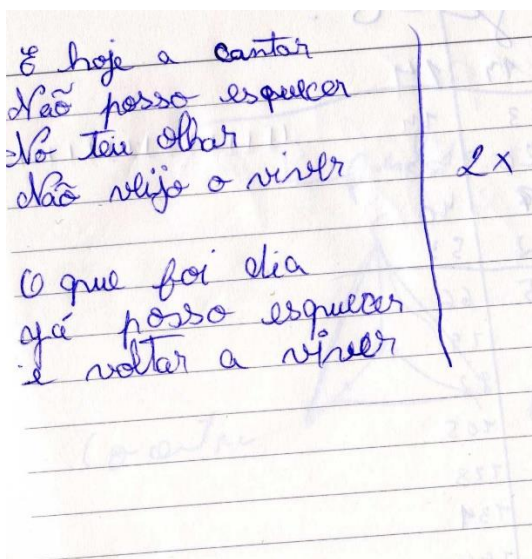 E hoje a cantar
Não posso esquecer
No teu olhar
Não vejo o viver
2x
O que foi dia
Já posso esquecer
e voltar a viver